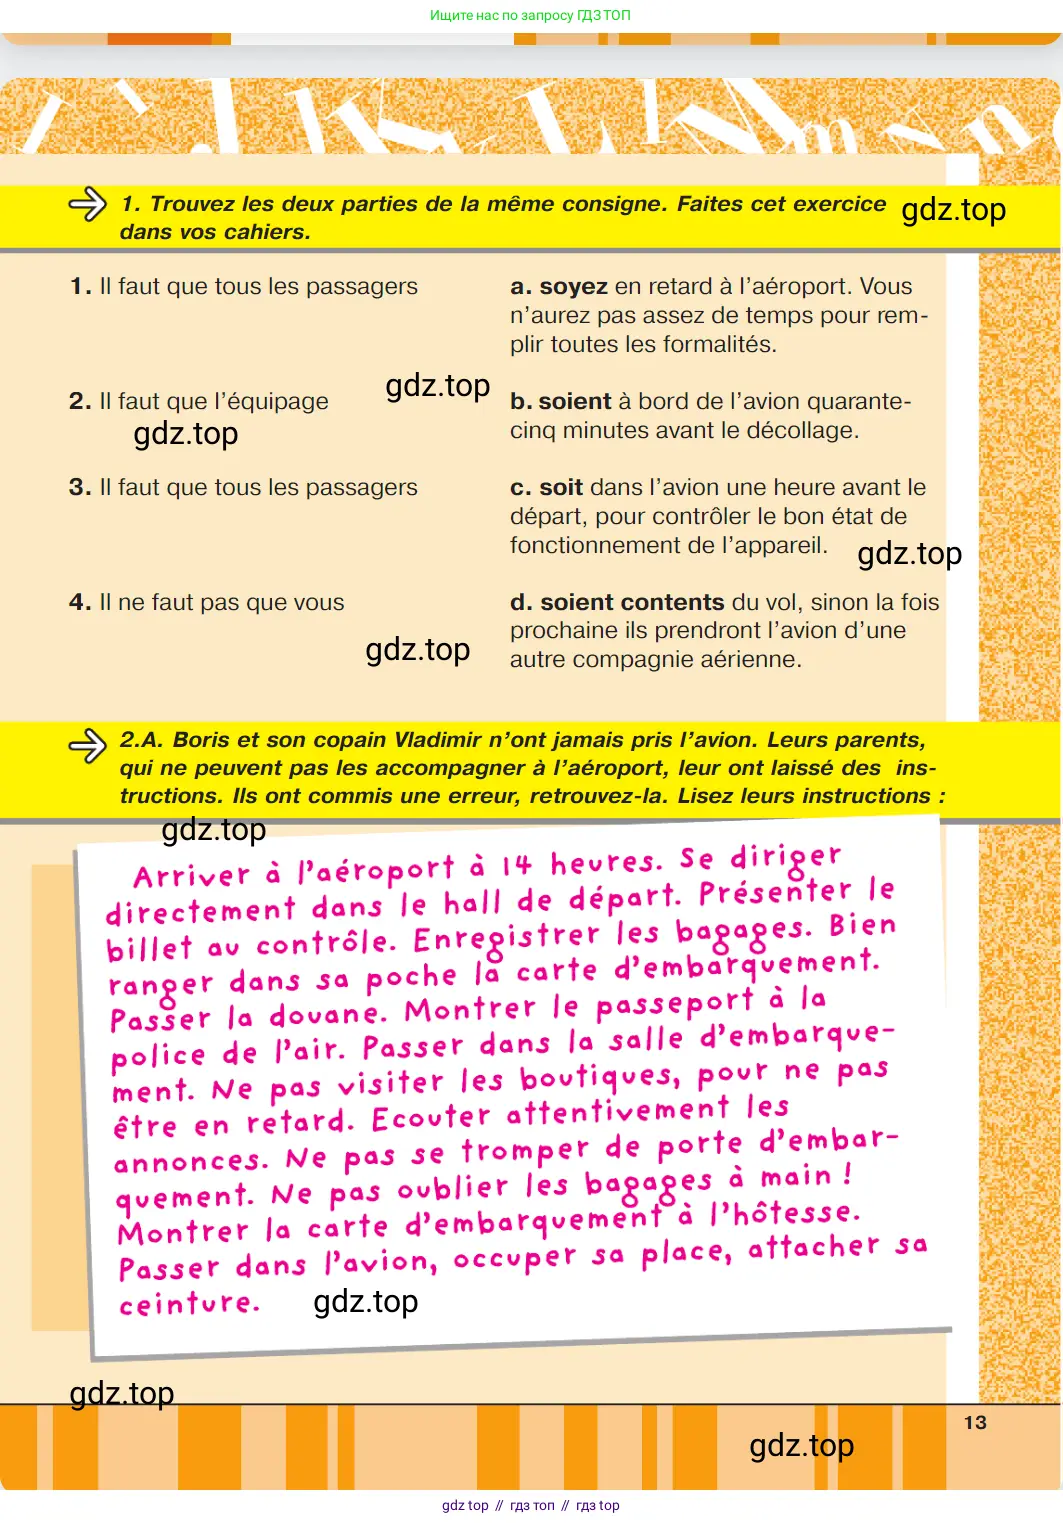 Ищите нас по запросу ГДЗ ТОП
1. Trouvez les deux parties de la même consigne. Faites cet exercice
dans vos cahiers.
gdz.top
1. Il faut que tous les passagers
a. soyez en retard à l'aéroport. Vous
n'aurez pas assez de temps pour rem-
plir toutes les formalités.
gdz.top
2. Il faut que l'équipage
gdz.top
b. soient à bord de l'avion quarante-
cinq minutes avant le décollage.
3. Il faut que tous les passagers
c. soit dans l'avion une heure avant le
départ, pour contrôler le bon état de
fonctionnement de l'appareil.
gdz.top
4. Il ne faut pas que vous
gdz.top
d. soient contents du vol, sinon la fois
prochaine ils prendront l'avion d'une
autre compagnie aérienne.
2.A. Boris et son copain Vladimir n'ont jamais pris l'avion. Leurs parents,
qui ne peuvent pas les accompagner à l'aéroport, leur ont laissé des ins-
tructions. Ils ont commis une erreur, retrouvez-la. Lisez leurs instructions :
gdz.top
Arriver à l'aéroport à 14 heures. Se diriger
directement dans le hall de départ. Présenter le
billet au contrôle. Enregistrer les bagages. Bien
ranger dans sa poche la carte d'embarquement.
Passer la douane. Montrer le passeport à la
police de l'air. Passer dans la salle d'embarque-
ment. Ne pas visiter les boutiques, pour ne pas
être en retard. Ecouter attentivement les
annonces. Ne pas se tromper de porte d'embar-
quement. Ne pas oublier les bagages à main !
Montrer la carte d'embarquement à l'hôtesse.
Passer dans l'avion, occuper sa place, attacher sa
ceinture.
gdz.top
gdz.top
13
gdz.top
gdz top // гдз топ // гдз top